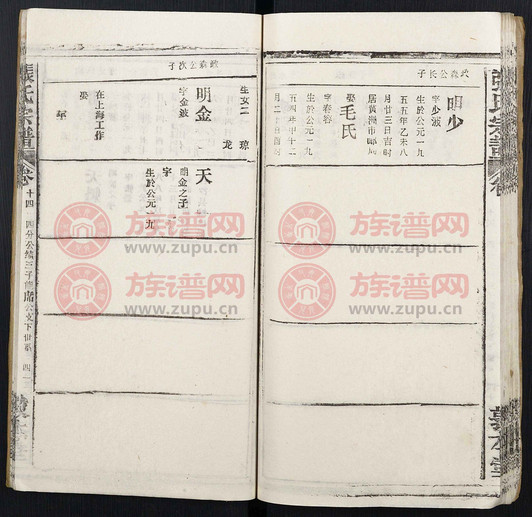 张氏宗谱 卷
武森公长子
明少
字少波
生於公元一九
五五年乙未八
月廿三日吉时
居黄
市邮局
娶毛氏
字春容
生於公元一九
五四年甲午二
月二十
生女二
琼
龙
武森公次子
明金
字金波
在上海工作
娶
年
天
明金之子
字
生於公元一九
张氏宗谱 卷
十四
四分公
三子
公文下世系
四一
敦本堂
族谱网
www.zupu.cn
族谱网
www.zupu.cn
族谱网
www.zupu.cn
族谱网
www.zupu.cn